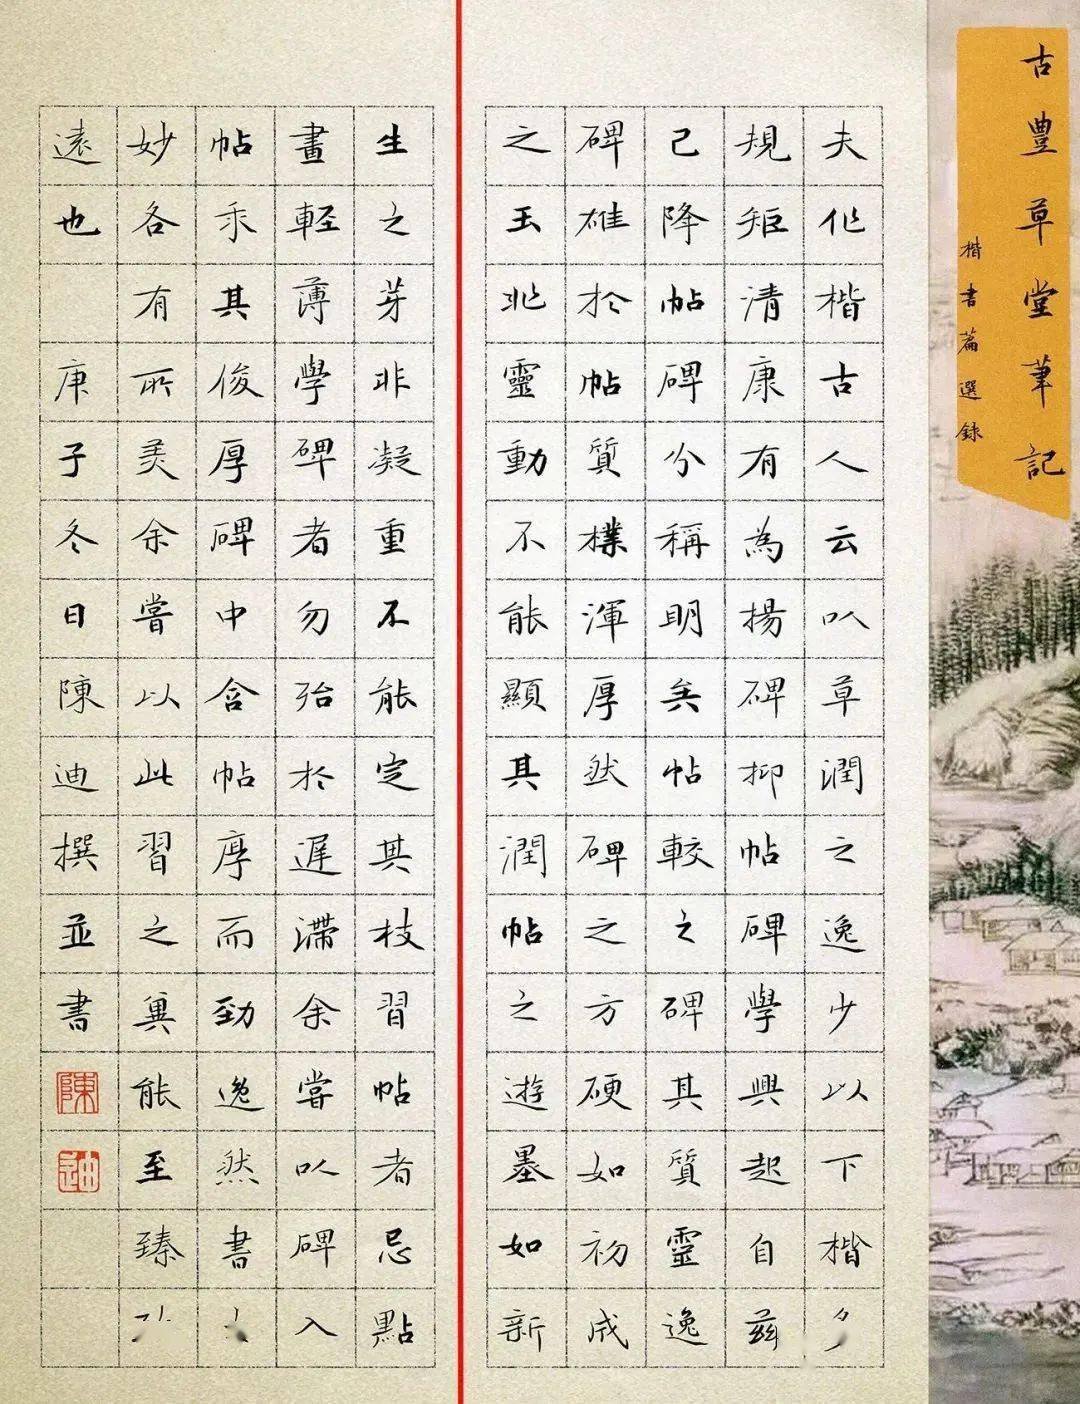 古豊草堂筆記
楷書篇選録
夫作楷古人云以草潤之逸少以下楷
規矩清康有為揚碑抑帖碑學興起自茲
已降帖碑分稱明矣帖較之碑其質靈逸
碑雄於帖質樸渾厚然碑之方硬如初成
之玉非靈動不能顯其潤帖之遊墨如新
生之芽非凝重不能定其枝習帖者忌點
畫輕薄學碑者勿殆於遲滯余嘗以碑入
帖求其俊厚碑中含帖序而勁逸然書
妙各有所美余嘗以此習之冀能至臻
遠也 庚子冬日陳迪撰並書
陳
迪